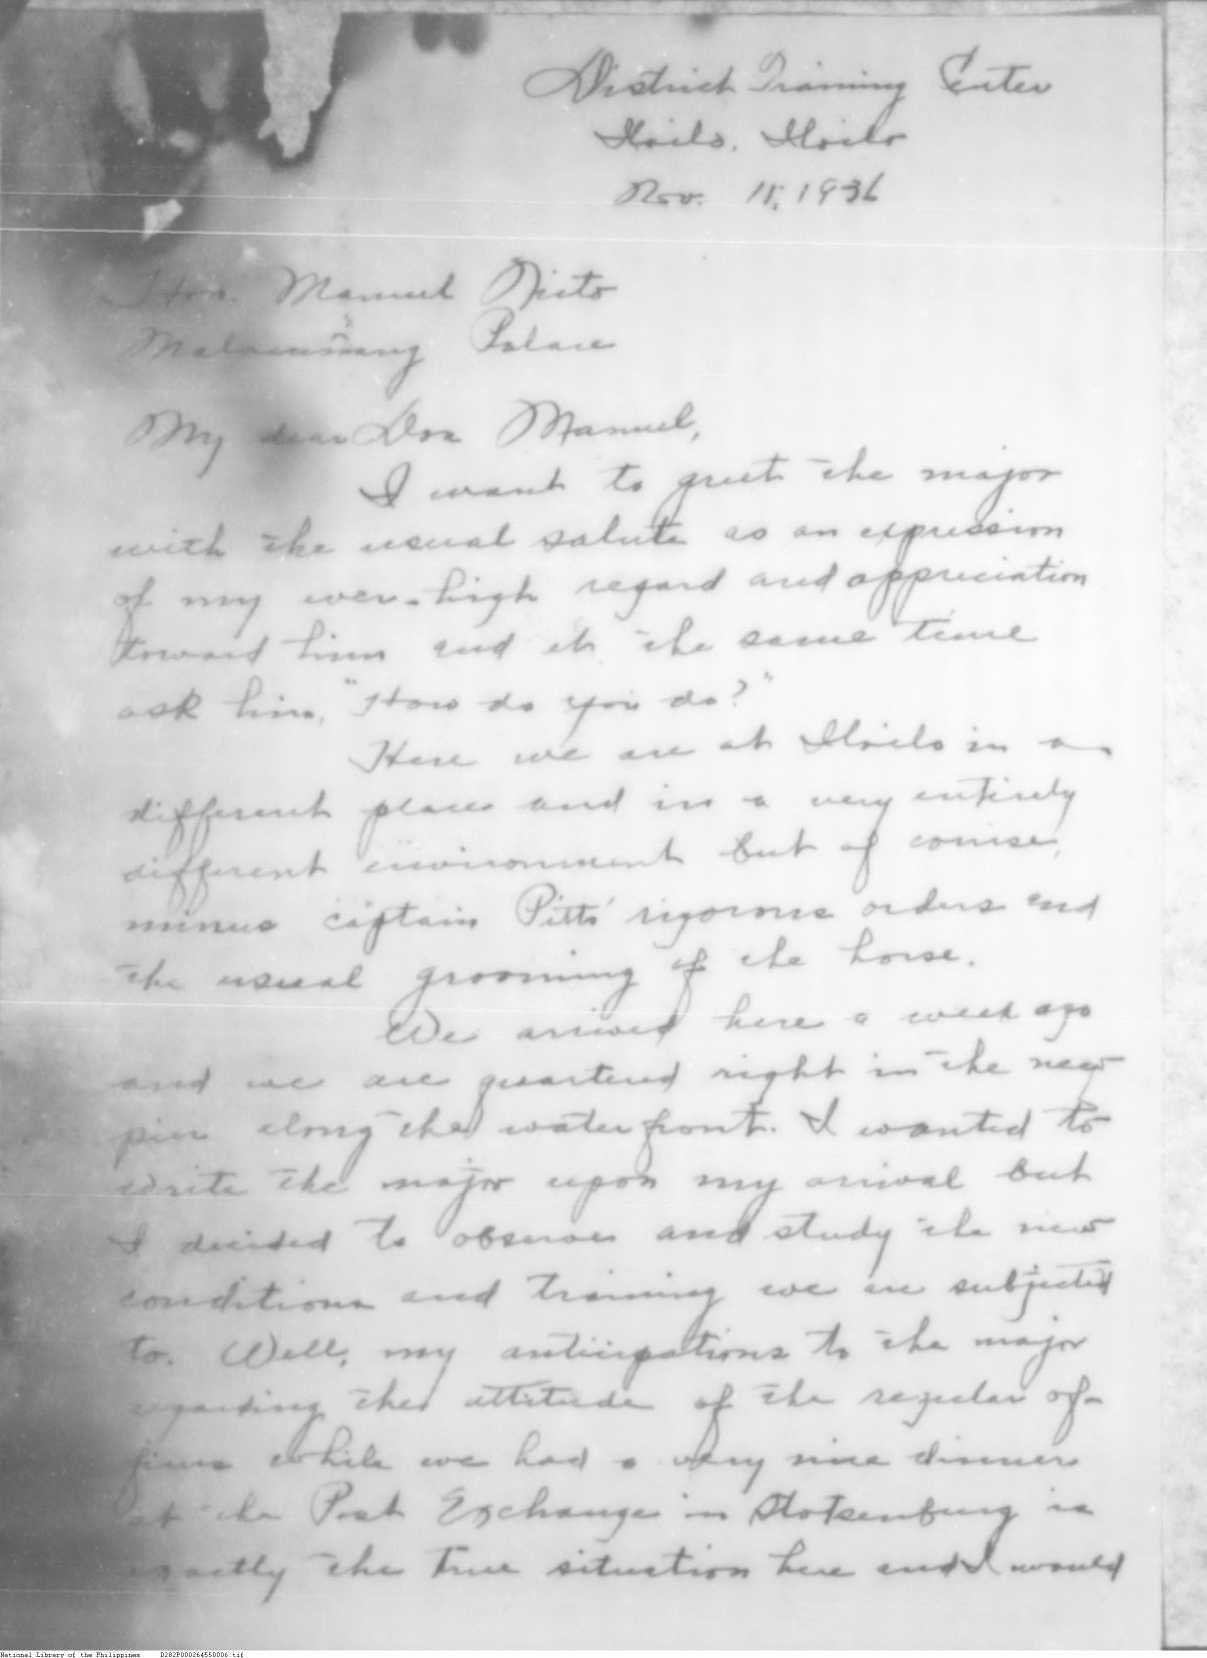 District Training Center
Iloilo, Iloilo
Nov. 11, 1936
Hon. Manuel Nieto
Malacañang Palace
My dear Don Manuel,
I want to greet the major
with the usual salute as an expression
of my ever-high regard and appreciation
toward him and at the same time
ask him, "How do you do?"
Here we are at Iloilo in a
different place and in a very entirely
different environment but of course,
minus captain Pitts' rigorous orders and
the usual grooming of the horse.
We arrived here a week ago
and we are quartered right in the new
pier along the water front. I wanted to
write the major upon my arrival but
I decided to observe and study the new
conditions and training we are subjected
to. Well, my anticipations to the major
regarding the attitude of the regular of-
ficers while we had a very nice dinner
at the Post Exchange in Stotsenburg is
exactly the true situation here and I would
National Library of the Philippines D282P000264550006.tif